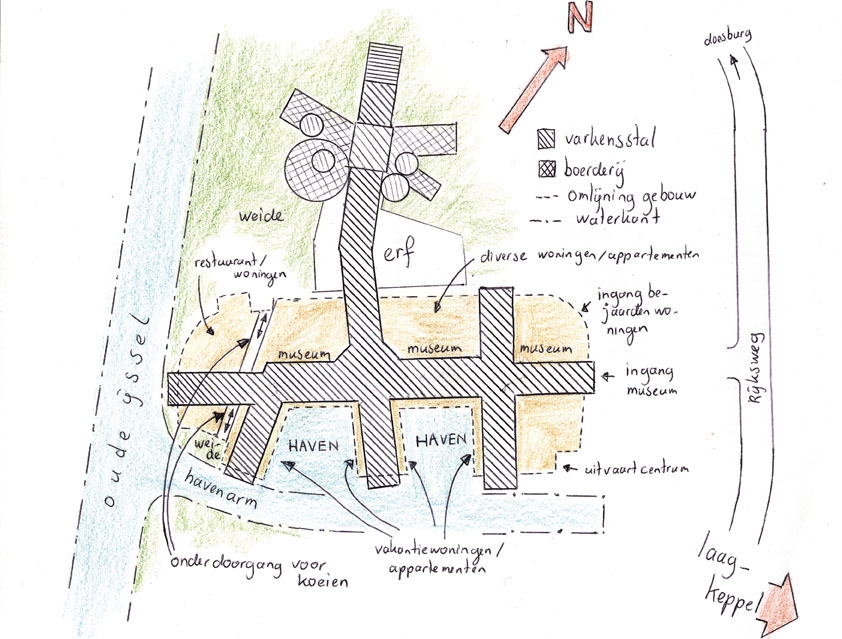 N
doesburg
varkensstal
boerderij
omlijning gebouw
waterkant
weide
erf
diverse woningen/appartementen
restaurant/
woningen
ingang be-
jaarden wo-
ningen
museum
museum
museum
ingang
museum
Rijksweg
oude ijssel
HAVEN
HAVEN
wei-
de
havenarm
uitvaartcentrum
onderdoorgang voor
koeien
vakantiewoningen/
appartementen
laag-
keppel